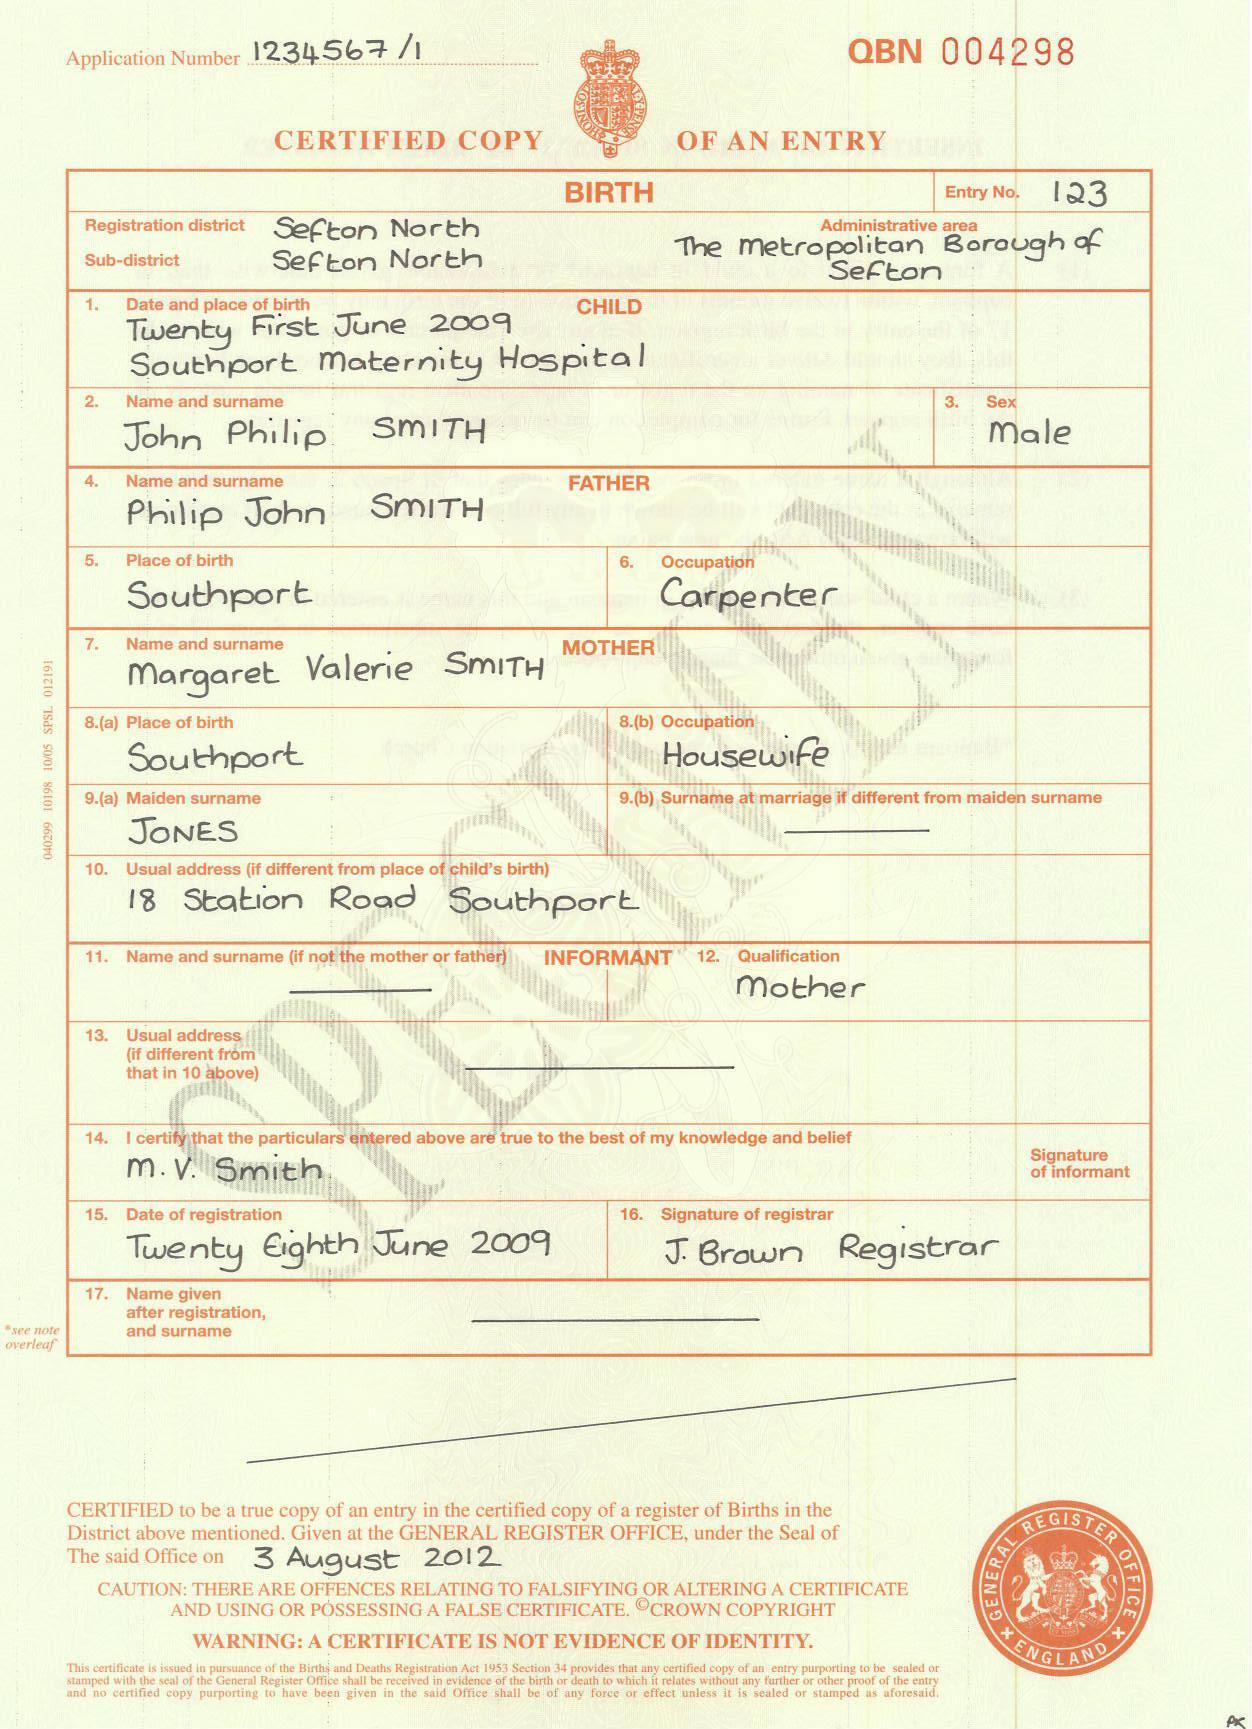 Application Number 1234567/1
QBN 004298
CERTIFIED COPY OF AN ENTRY
BIRTH
Entry No. 123
Registration district Sefton North
Sub-district Sefton North
Administrative area
The Metropolitan Borough of
Sefton
1. Date and place of birth
CHILD
Twenty First June 2009
Southport Maternity Hospital
2. Name and surname
John Philip SMITH
3. Sex
Male
4. Name and surname
FATHER
Philip John SMITH
5. Place of birth
Southport
6. Occupation
Carpenter
7. Name and surname
MOTHER
Margaret Valerie SMITH
8.(a) Place of birth
Southport
8.(b) Occupation
Housewife
9.(a) Maiden surname
JONES
9.(b) Surname at marriage if different from maiden surname
10. Usual address (if different from place of child's birth)
18 Station Road Southport
11. Name and surname (if not the mother or father)
INFORMANT
12. Qualification
Mother
13. Usual address
(if different from
that in 10 above)
14. I certify that the particulars entered above are true to the best of my knowledge and belief
M. V. Smith
Signature
of informant
15. Date of registration
Twenty Eighth June 2009
16. Signature of registrar
J. Brown Registrar
17. Name given
after registration,
and surname
*see note
overleaf
040299 10198 10/05 SPSL 012191
SPECIMEN
CERTIFIED to be a true copy of an entry in the certified copy of a register of Births in the
District above mentioned. Given at the GENERAL REGISTER OFFICE, under the Seal of
The said Office on 3 August 2012
CAUTION: THERE ARE OFFENCES RELATING TO FALSIFYING OR ALTERING A CERTIFICATE
AND USING OR POSSESSING A FALSE CERTIFICATE. ©CROWN COPYRIGHT
WARNING: A CERTIFICATE IS NOT EVIDENCE OF IDENTITY.
This certificate is issued in pursuance of the Births and Deaths Registration Act 1953 Section 34 provides that any certified copy of an entry purporting to be sealed or
stamped with the seal of the General Register Office shall be received in evidence of the birth or death to which it relates without any further or other proof of the entry
and no certified copy purporting to have been given in the said Office shall be of any force or effect unless it is sealed or stamped as aforesaid.
GENERAL REGISTER OFFICE
ENGLAND